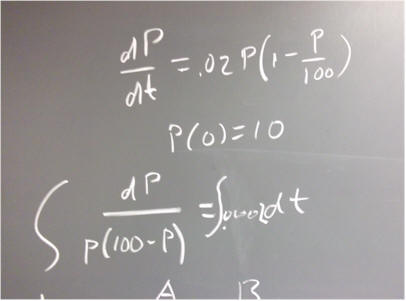 dP/dt = .02 P(1 - P/100)
P(0) = 10
∫ dP/P(100-P) = ∫.0002dt
A B